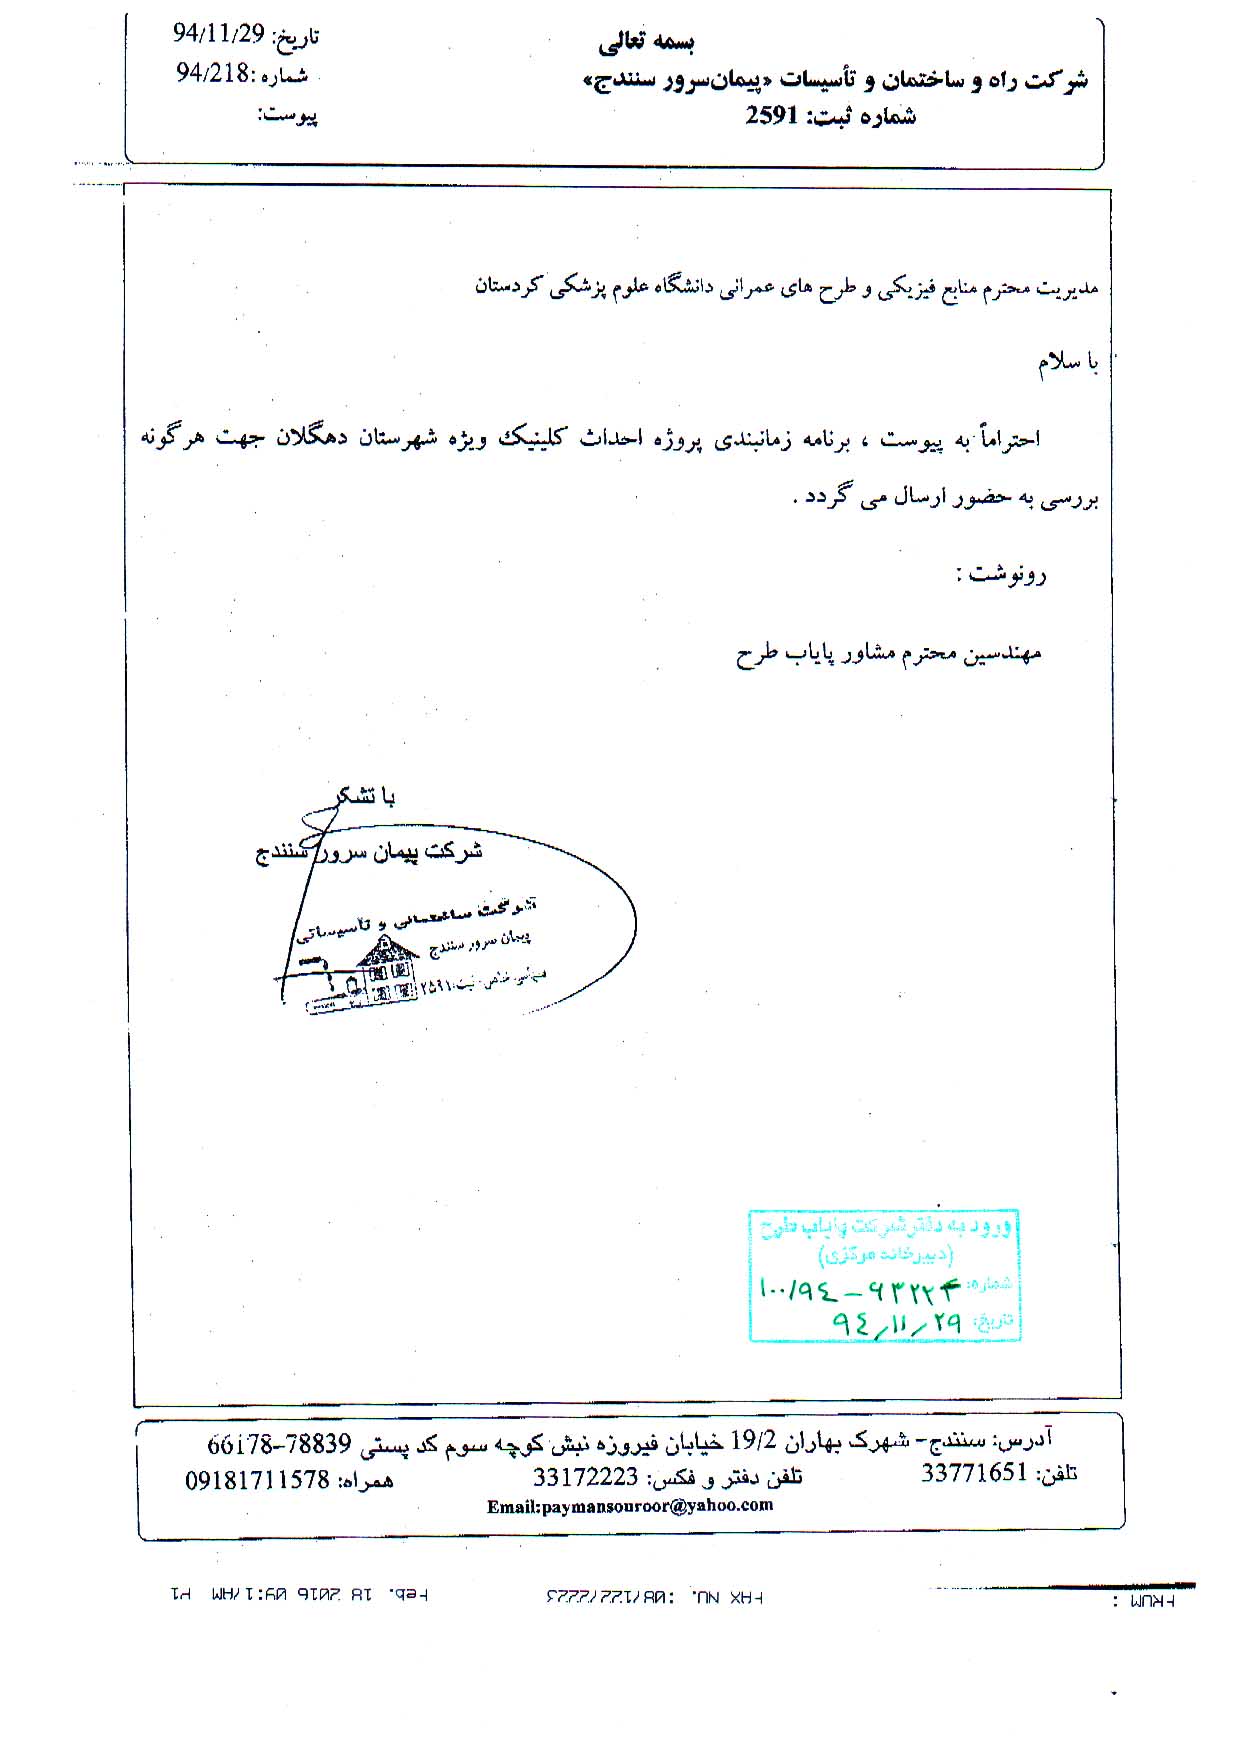 بسمه تعالی
شرکت راه و ساختمان و تأسیسات «پیمان‌سرور سنندج»
شماره ثبت: 2591
تاریخ: 94/11/29
شماره: 94/218
پیوست:
مدیریت محترم منابع فیزیکی و طرح های عمرانی دانشگاه علوم پزشکی کردستان
با سلام
احتراماً به پیوست ، برنامه زمانبندی پروژه احداث کلینیک ویژه شهرستان دهگلان جهت هرگونه
بررسی به حضور ارسال می گردد .
رونوشت :
مهندسین محترم مشاور پایاب طرح
با تشکر
شرکت پیمان سرور سنندج
ساختمانی و تأسیساتی
پیمان سرور سنندج
ثبت: ۲۵۹۱
ورود به دفتر شرکت پایاب طرح
(دبیرخانه مرکزی)
شماره: ۱۰۰/۹٤-۶۳۲۲۴
تاریخ: ۹٤/۱۱/۲۹
آدرس: سنندج- شهرک بهاران 19/2 خیابان فیروزه نبش کوچه سوم کد پستی 78839-66178
تلفن: 33771651 تلفن دفتر و فکس: 33172223 همراه: 09181711578
Email:paymansouroor@yahoo.com